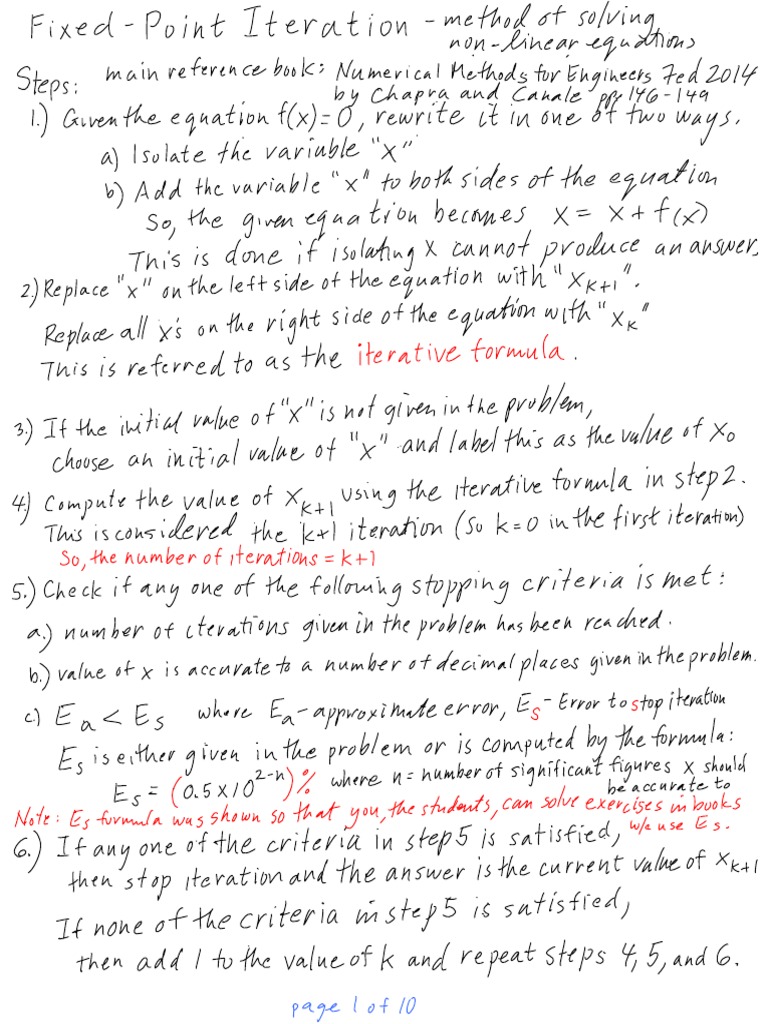 Fixed-Point Iteration - method of solving
non-linear equations
Steps: main reference book: Numerical Methods for Engineers 7ed 2014
by Chapra and Canale pp 146-149
1.) Given the equation f(x)=0, rewrite it in one of two ways.
a) Isolate the variable "x"
b) Add the variable "x" to both sides of the equation
So, the given equation becomes x = x + f(x)
This is done if isolating x cannot produce an answer.
2.) Replace "x" on the left side of the equation with "x_{k+1}".
Replace all x's on the right side of the equation with "x_k"
This is referred to as the iterative formula.
3.) If the initial value of "x" is not given in the problem,
choose an initial value of "x" and label this as the value of x_0
4.) Compute the value of x_{k+1} using the iterative formula in step 2.
This is considered the k+1 iteration (so k=0 in the first iteration)
So, the number of iterations = k+1
5.) Check if any one of the following stopping criteria is met:
a.) number of iterations given in the problem has been reached.
b.) value of x is accurate to a number of decimal places given in the problem.
c) E_a < E_s where E_a - approximate error, E_s - Error to stop iteration
E_s is either given in the problem or is computed by the formula:
E_s = (0.5x10^{2-n})% where n = number of significant figures x should
be accurate to
Note: Es formula was shown so that you, the students, can solve exercises in books
w/c use Es.
6.) If any one of the criteria in step 5 is satisfied,
then stop iteration and the answer is the current value of x_{k+1}
If none of the criteria in step 5 is satisfied,
then add 1 to the value of k and repeat steps 4, 5, and 6.
page 1 of 10